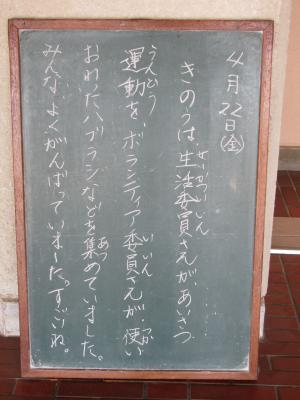 4月22日(金)
きのうは生活委員さんが、あいさつ
せいかついいん
運動を、ボランティア委員さんが、使い
うんどう
いいん
つか
おわったハブラシなどを集めていました。
あつ
みんな、よくがんばっていました。すごいね。